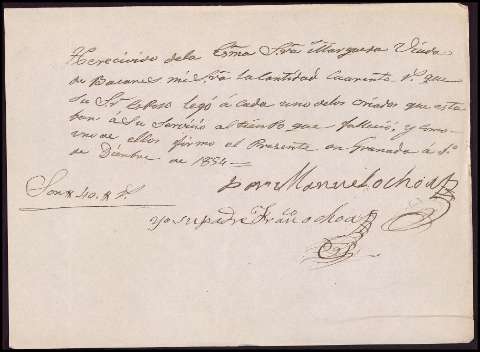 He recivido de la Exma Sra Marquesa Viuda
de Bacares mi Sra la Cantidad Cuarenta rs que
Su Sr Esposo legó á Cada uno de los criados que esta
ban á Su Servicio al tiempo que fallecio, y como
uno de ellos firmo el Presente en Granada á 1o
de Dicmbre de 1854
Son # 40 # rs
por Manuel ochoa
yo su padre Franco ochoa